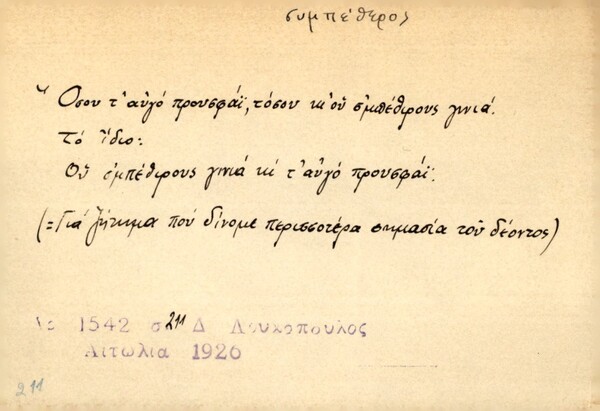 συμπέθερος
Ὅσου τ' αὐγό προυσφάϊ, τόσου κι οὑ σ'μπέθιρους γινιά.
Τό ἴδιο:
Οὑ σ'μπέθιρους γινιά κι τ' αὐγό προυσφάϊ.
(= Γιά ζήτημα πού δίνομε περισσοτέρα σημασία τοῦ δέοντος)
1542 σ 211 Δ Λουκοπουλος
Αιτωλια 1926
211